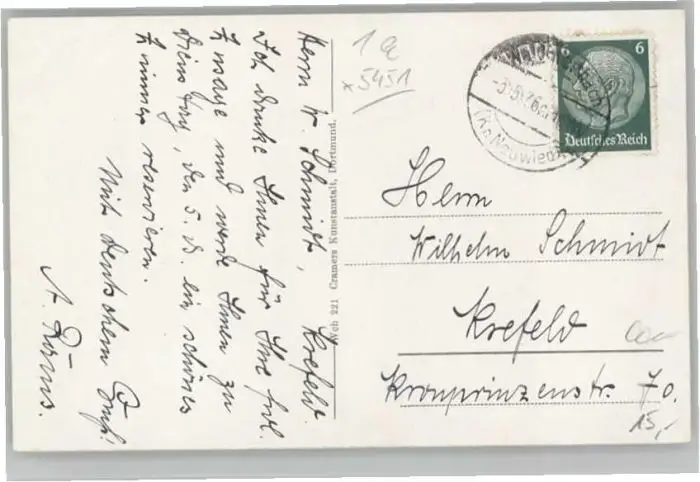 Herrn W. Schmidt, Krefeld.
Ich danke Ihnen für Ihre frdl.
Zusage und werde Ihnen zu
Dienstag, den 5. ds ein schönes
Zimmer reservieren.
Mit deutschem Gruß!
A.
Web 221 Cramers Kunstanstalt, Dortmund.
1
x 5451
-3.5.36
(Kr. Neuwied)
6 6
Deutsches Reich
Herrn
Wilhelm Schmidt
Krefeld
Kronprinzenstr. 70.
15,-